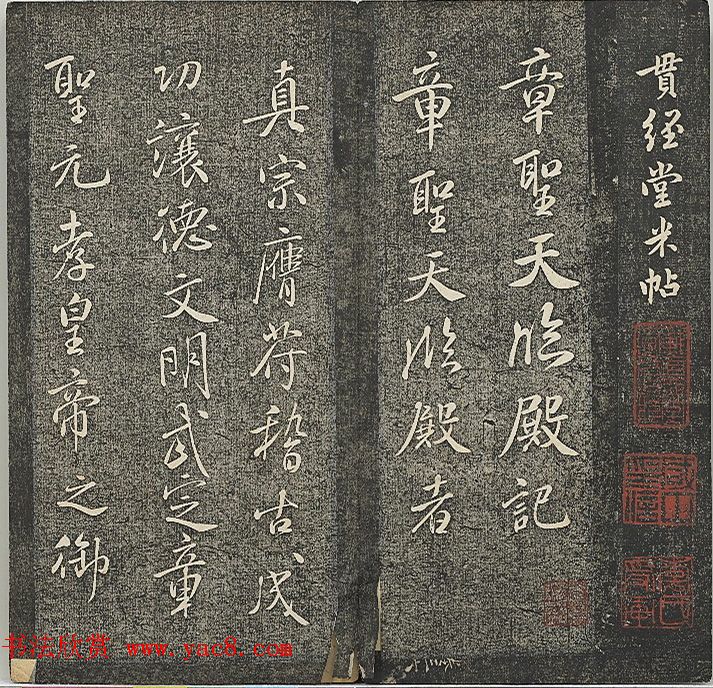 貫經堂米帖
章聖天臨殿記
章聖天臨殿者
真宗膺符稽古成
功讓德文明武定章
聖元孝皇帝之御
书法欣赏 www.yac8.com